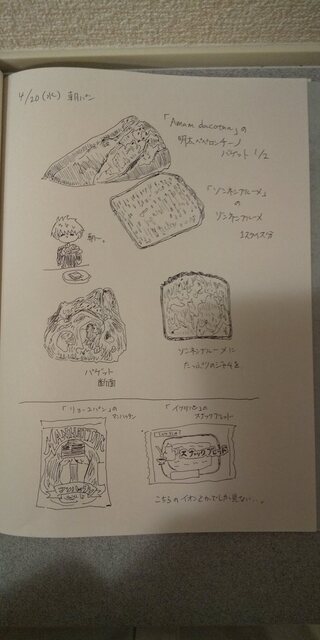 4/20(水) 朝パン
「Amam dacotan」の
明太ペペロンチーノ
バゲット 1/2
「ゾンネンブルーメ」
の
ゾンネンブルーメ
1スライス分
朝ー。
バゲット
断面
ゾンネンブルーメに
たっぷりのジャムを。
「リョーユーパン」の
マンハッタン
MANHATTAN
マンハッタン
「イケダパン」の
スナックブレッド
スナックブレッド
こちらのイオンとかでしか見ない…。